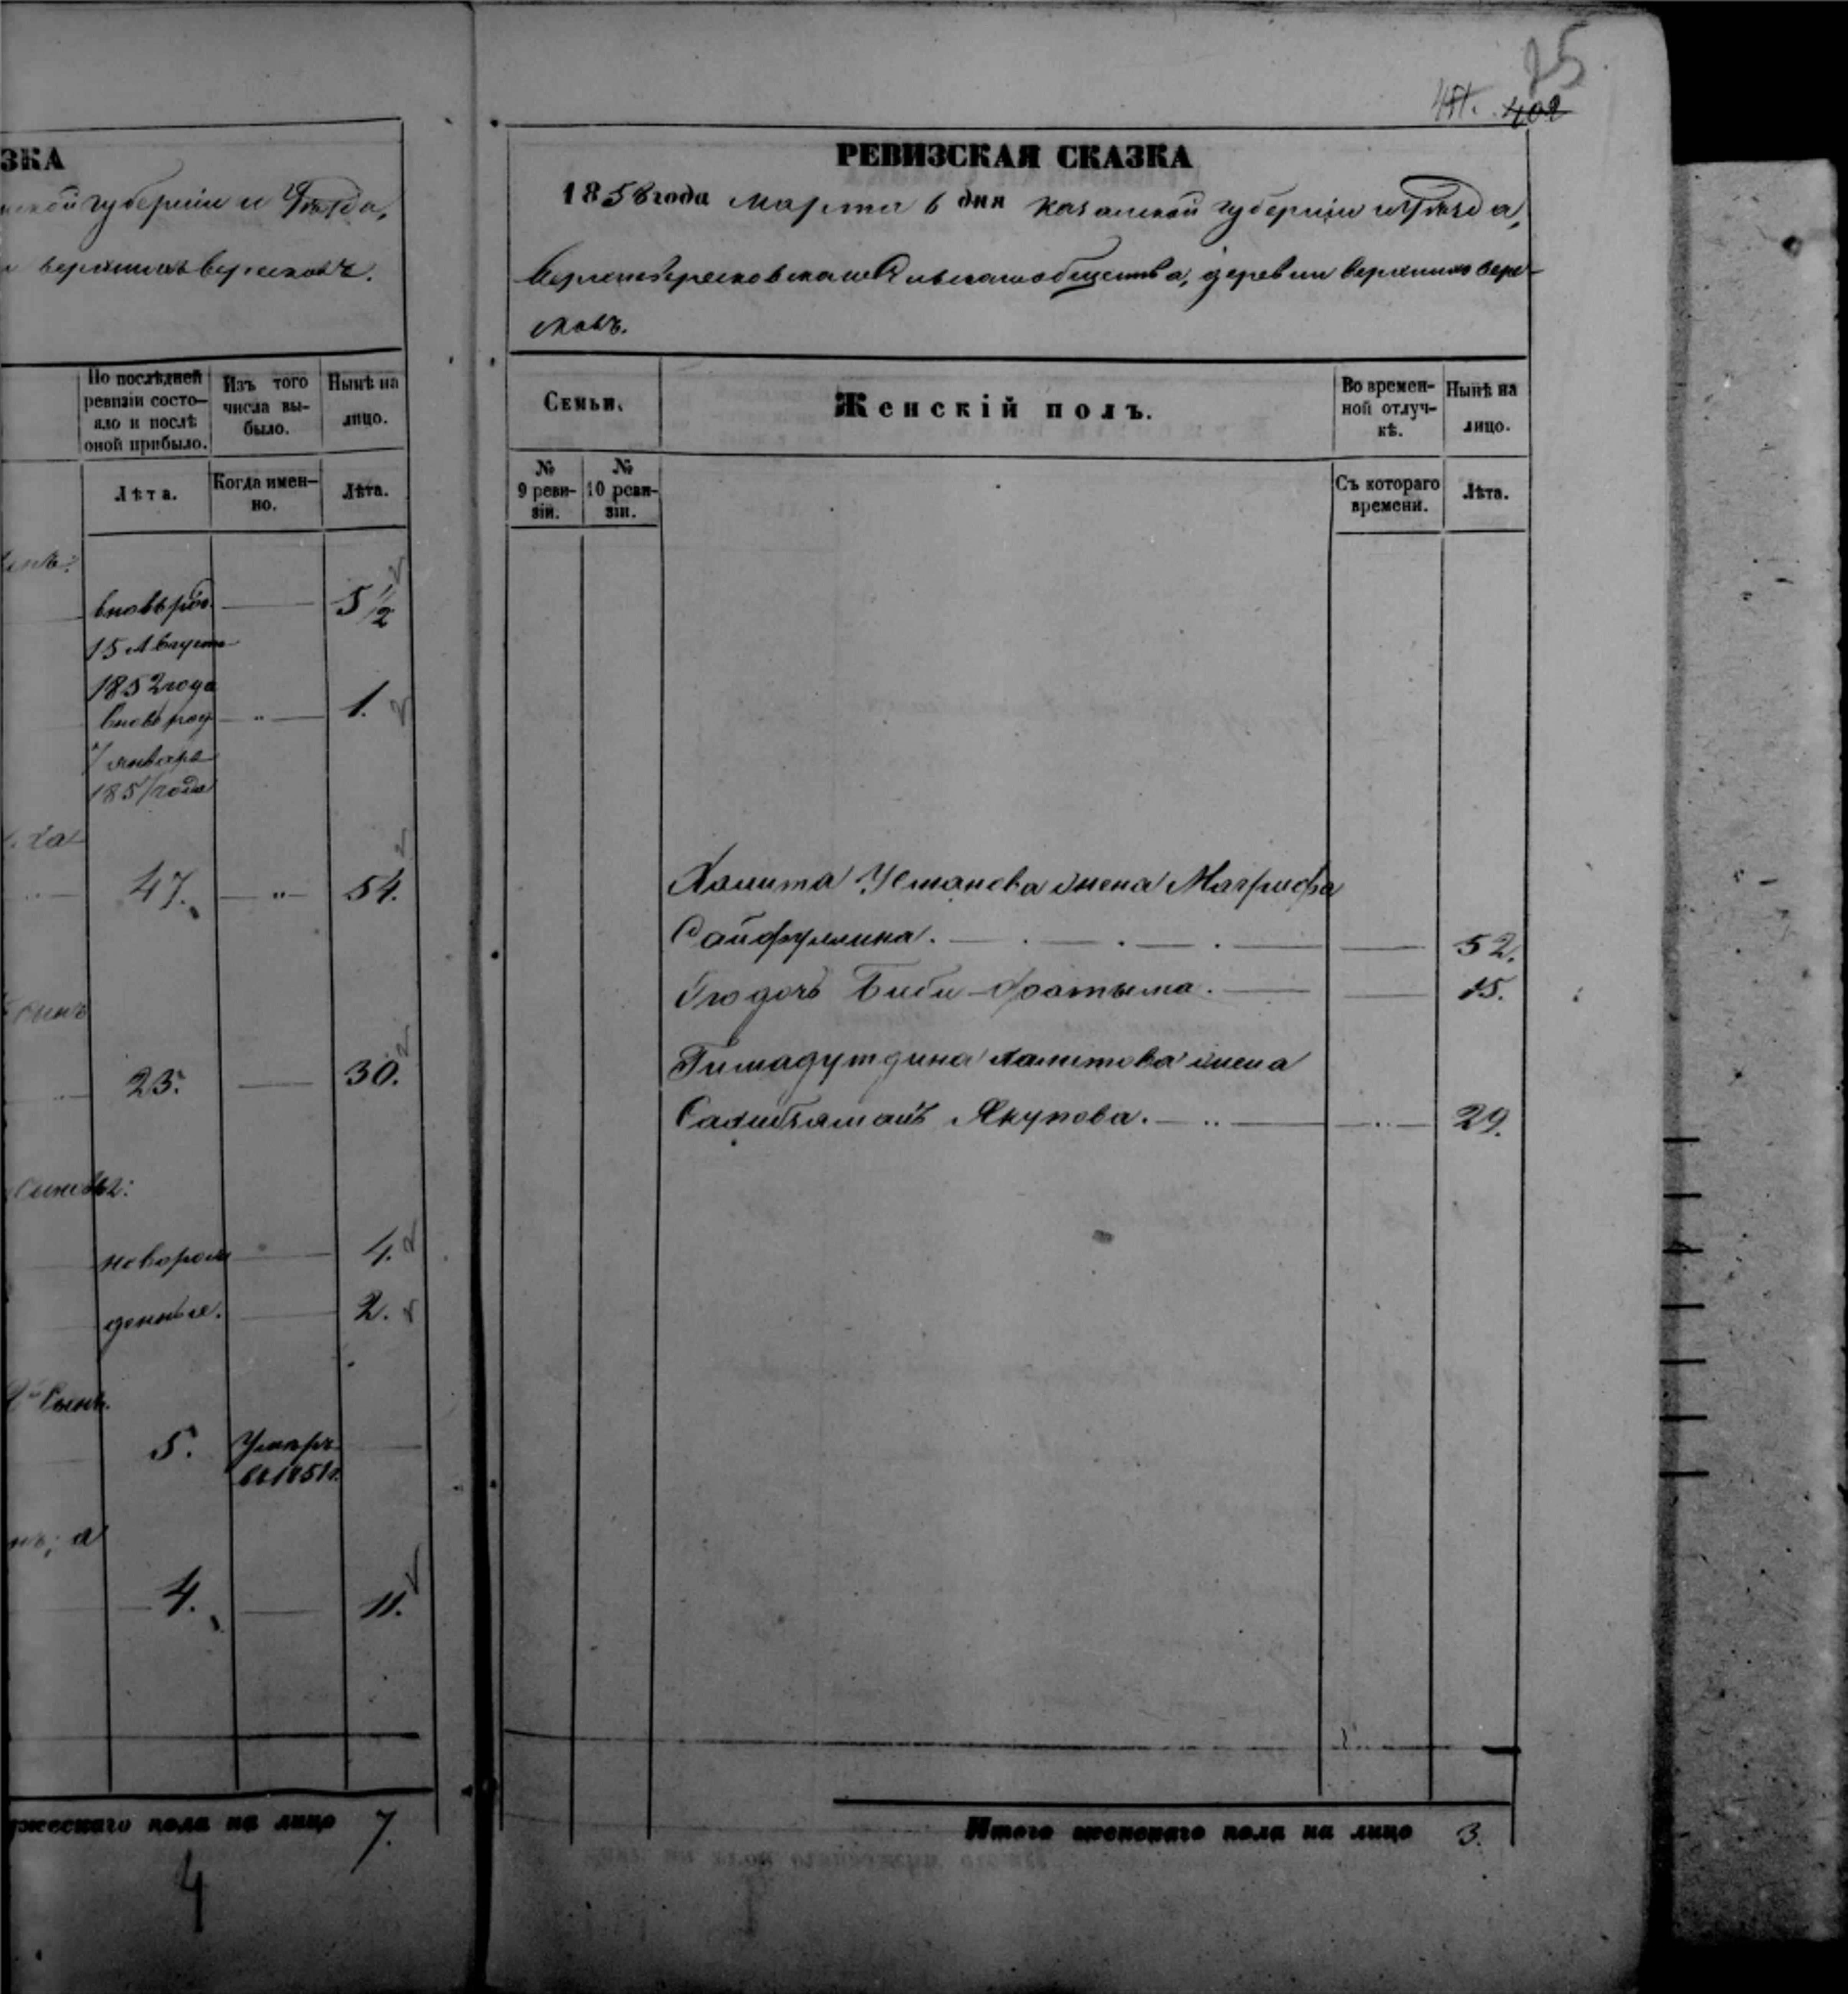 ЗКА
губерніи и Уѣзда,
По послѣдней ревизіи состояло и послѣ оной прибыло.
Изъ того числа выбыло.
Нынѣ на лицо.
Лѣта.
Когда именно.
Лѣта.
вновь рож.
5 1/2
15 Августа
1852 года
вновь род
1.
7 января
185 года
47.
54.
сынъ
23.
30.
новорож
4.
денные.
2.
сынъ.
5.
Умеръ
въ 1851 г.
4.
11.
жескаго пола на лицо 7.
4
25
402
РЕВИЗСКАЯ СКАЗКА
1858 года Марта 6 дня Казанской губерніи и Уѣзда,
общества, деревни Верхнихъ Вере-
сковъ.
Семьи.
Женскій полъ.
Во временной отлучкѣ.
Нынѣ на лицо.
№ 9 ревизіи.
№ 10 ревизіи.
Съ котораго времени.
Лѣта.
Халита Усманова жена Магрифа
Сайфуллина. 52.
Его дочь Биби Фатыма. 15.
Гимадутдина Халитова жена
Якупова. 29.
Итого женскаго пола на лицо 3.